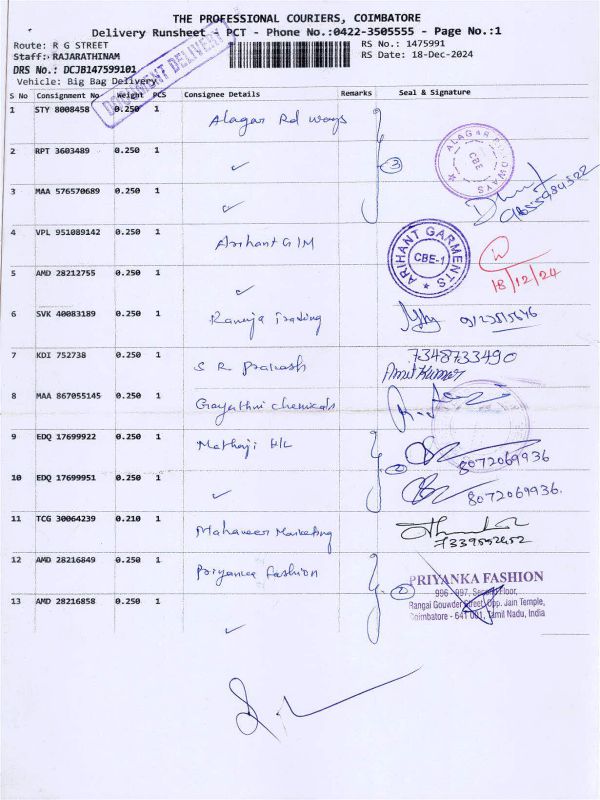 THE PROFESSIONAL COURIERS, COIMBATORE
Delivery Runsheet - PCT - Phone No.:0422-3505555 - Page No.:1
Route: R G STREET
RS No.: 1475991
Staff: RAJARATHINAM
RS Date: 18-Dec-2024
DRS No.: DCJB147599101
Vehicle: Big Bag Delivery
DOCUMENT DELIVERY
S No Consignment No Weight PCS Consignee Details Remarks Seal & Signature
1 STY 8008458 0.250 1 Alagar Rd ways
2 RPT 3603489 0.250 1 ✓ 3
ALAGAR ROADWAYS CBE
3 MAA 576570689 0.250 1 ✓
4 VPL 951089142 0.250 1 Arihant G/M
ARIHANT GARMENTS CBE-1
18/12/24
5 AMD 28212755 0.250 1 ✓
6 SVK 40083189 0.250 1 Ramuja Trading
7 KDI 752738 0.250 1 S R Prakash 7348733490
Amit Kumar
8 MAA 867055145 0.250 1 Gayathri chemicals
9 EDQ 17699922 0.250 1 Mathaji H/L 2 8072069936
10 EDQ 17699951 0.250 1 ✓ 8072069936.
11 TCG 30064239 0.210 1 Mahaveer Marketing
12 AMD 28216849 0.250 1 Priyanka Fashion 2
PRIYANKA FASHION
996 - 997, Second Floor,
Rangai Gowder Street, Opp. Jain Temple,
Coimbatore - 641 001, Tamil Nadu, India
13 AMD 28216858 0.250 1 ✓